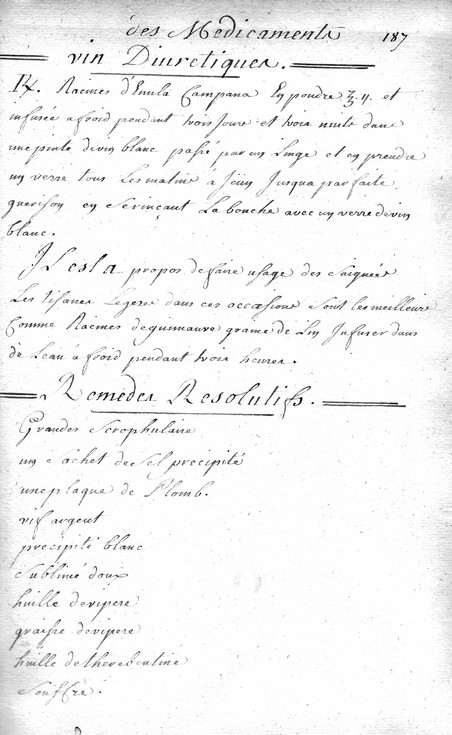 des Medicaments 187
vin Diuretiques.
R. Racines d'Enula Campana En poudre ʒ. 11. et
infusée a froid pendant trois Jours et trois nuits dans
une pinte de vin blanc passé par un Linge et en prendre
un verre tous Les matins à Jeun Jusqua parfaite
guerison en Se rinçant La bouche avec un verre de vin
blanc.
Il est a propos de faire usage des Saignées
Les tisanes Legeres dans ces occasions Sont les meilleures
Comme Racines de guimauve graine de Lin Infuser dans
de Leau à froid pendant trois heures.
Remedes Resolutifs.
Grandes Scrophulaire
un Sachet de Sel precipité
une plaque de Plomb.
vif argent
precipité blanc
Sublimé doux
huille de vipere
graisse de vipere
huille de therebentine
Souffre.